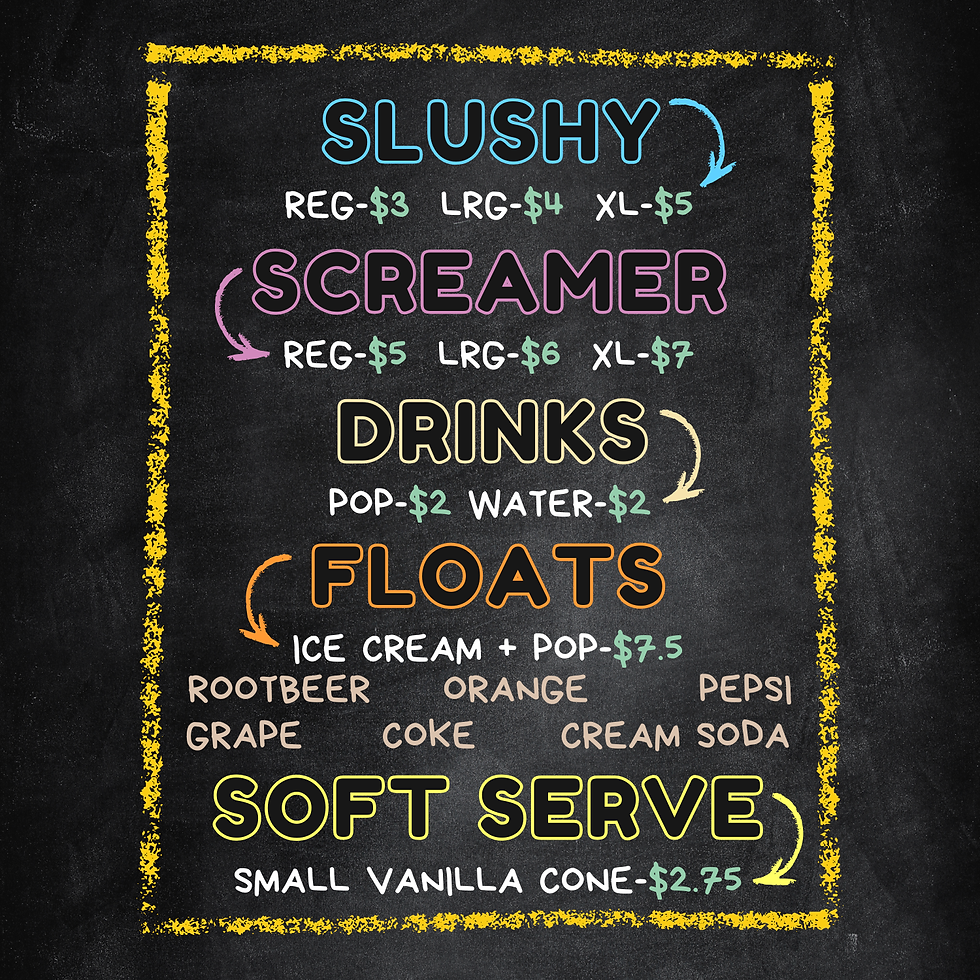 SLUSHY
REG-$3 LRG-$4 XL-$5
SCREAMER
REG-$5 LRG-$6 XL-$7
DRINKS
POP-$2 WATER-$2
FLOATS
ICE CREAM + POP-$7.5
ROOTBEER ORANGE PEPSI
GRAPE COKE CREAM SODA
SOFT SERVE
SMALL VANILLA CONE-$2.75